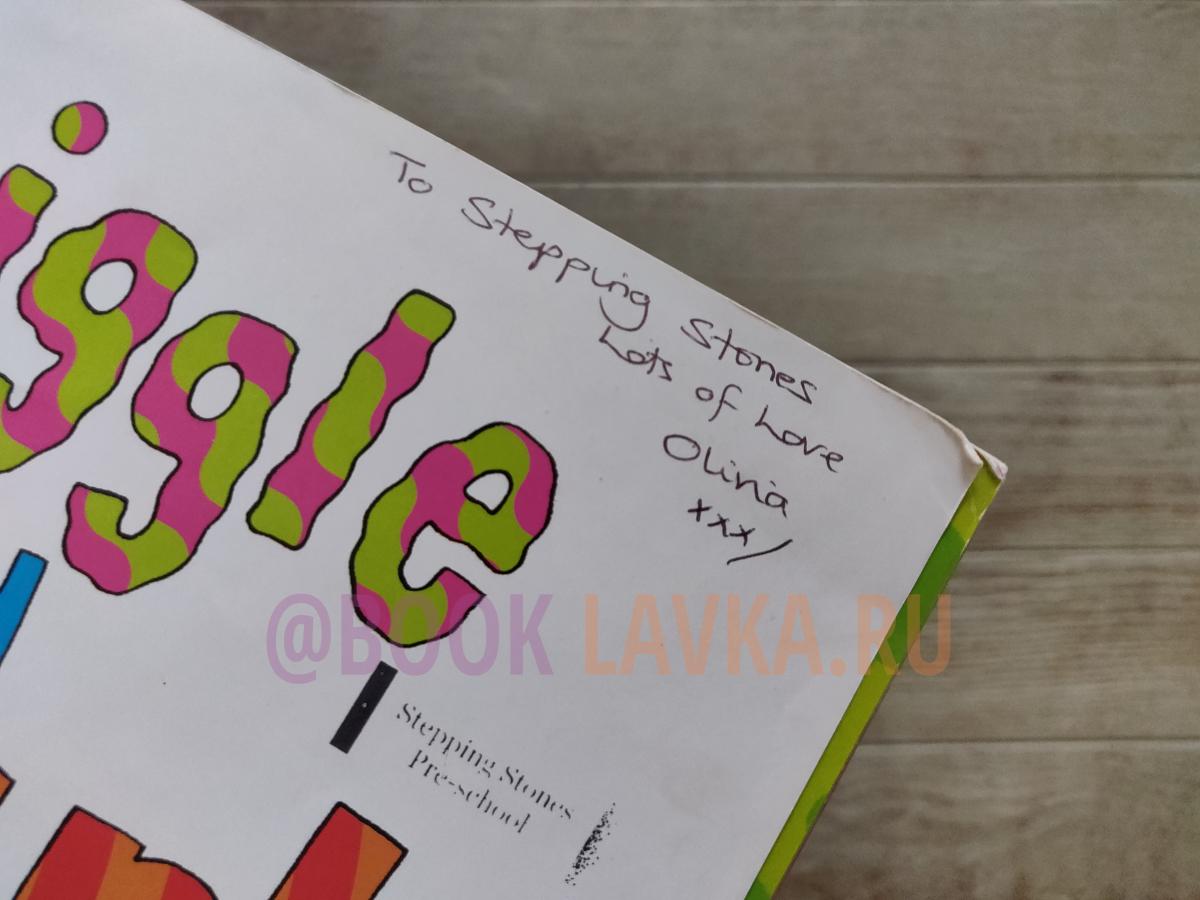 To Stepping Stones
Lots of Love
Olivia
xxx/
iggle
@BOOK LAVKA.RU
Stepping Stones
Pre-school